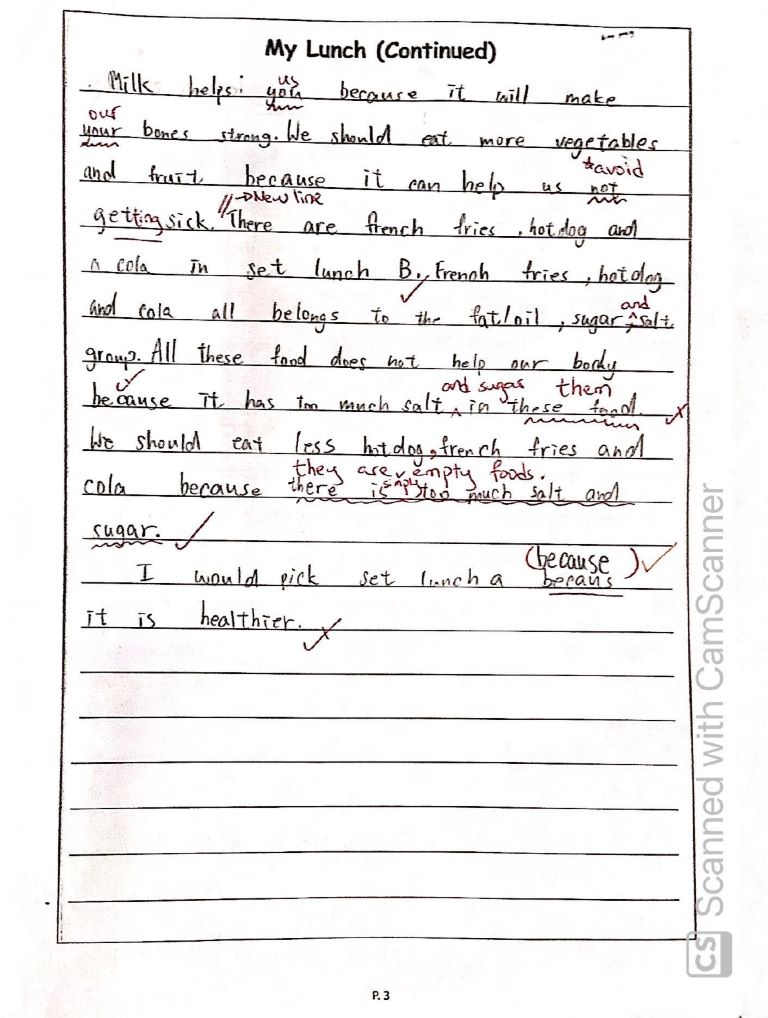 My Lunch (Continued)
Milk helps you because it will make
us
your bones strong. We should eat more vegetables
our
and fruit because it can help us not
*avoid
getting sick. // There are french fries, hotdog and
→New line
a cola in set lunch B. French fries, hotdog
and cola all belongs to the fat/oil, sugar, salt
and
group. All these food does not help our body
because it has too much salt in these food.
and sugar them
We should eat less hotdog, french fries and
cola because there is too much salt and
they are simply empty foods.
sugar.
I would pick set lunch a becaus
(because)
it is healthier.
P.3
CS Scanned with CamScanner